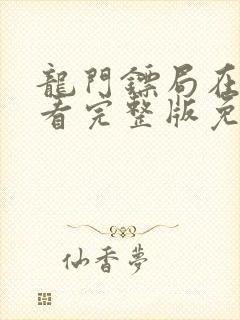 龍門鏢局在
看完整版免
仙香夢